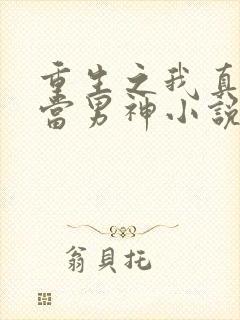 重生之我真
當男神小説
翁貝托